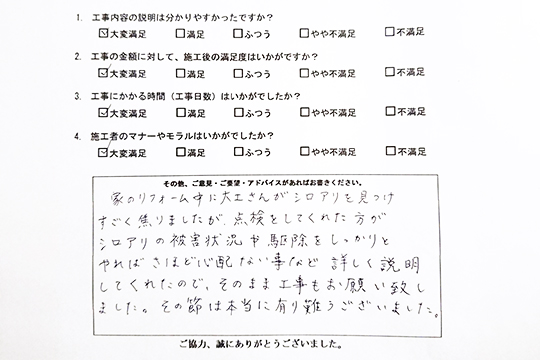 1. 工事内容の説明は分かりやすかったですか？
☑大変満足 □満足 □ふつう □やや不満足 □不満足
2. 工事の金額に対して、施工後の満足度はいかがですか？
☑大変満足 □満足 □ふつう □やや不満足 □不満足
3. 工事にかかる時間（工事日数）はいかがでしたか？
☑大変満足 □満足 □ふつう □やや不満足 □不満足
4. 施工者のマナーやモラルはいかがでしたか？
☑大変満足 □満足 □ふつう □やや不満足 □不満足
その他、ご意見・ご要望・アドバイスがあればお書きください。
家のリフォーム中に大工さんがシロアリを見つけ
すごく焦りましたが、点検をしてくれた方が
シロアリの被害状況や駆除をしっかりと
やればさほど心配ない事など詳しく説明
してくれたので、そのまま工事もお願い致し
ました。その節は本当に有り難うございました。
ご協力、誠にありがとうございました。